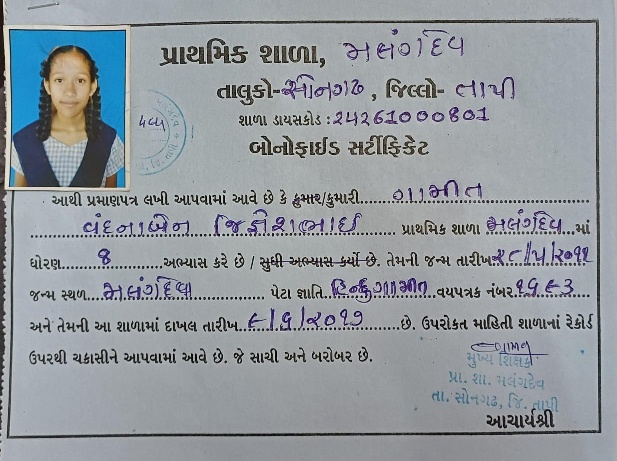 પ્રાથમિક શાળા, મલંગદેવ
તાલુકો-સોનગઢ, જિલ્લો- તાપી
શાળા ડાયસકોડ : 24261000801
બોનોફાઈડ સર્ટીફિકેટ
આથી પ્રમાણપત્ર લખી આપવામાં આવે છે કે કુમાર/કુમારી ગામીત
વંદનાબેન જિજ્ઞેશભાઈ પ્રાથમિક શાળા મલંગદેવ માં
ધોરણ 8 અભ્યાસ કરે છે / સુધી અભ્યાસ કર્યો છે. તેમની જન્મ તારીખ
જન્મ સ્થળ મલંગદેવ પેટા જ્ઞાતિ હિન્દુગામીત વયપત્રક નંબર
અને તેમની આ શાળામાં દાખલ તારીખ છે. ઉપરોકત માહિતી શાળાનાં રેકોર્ડ
ઉપરથી ચકાસીને આપવામાં આવે છે. જે સાચી અને બરોબર છે.
મુખ્ય શિક્ષક
પ્રા. શા. મલંગદેવ
તા. સોનગઢ, જિ. તાપી
આચાર્યશ્રી